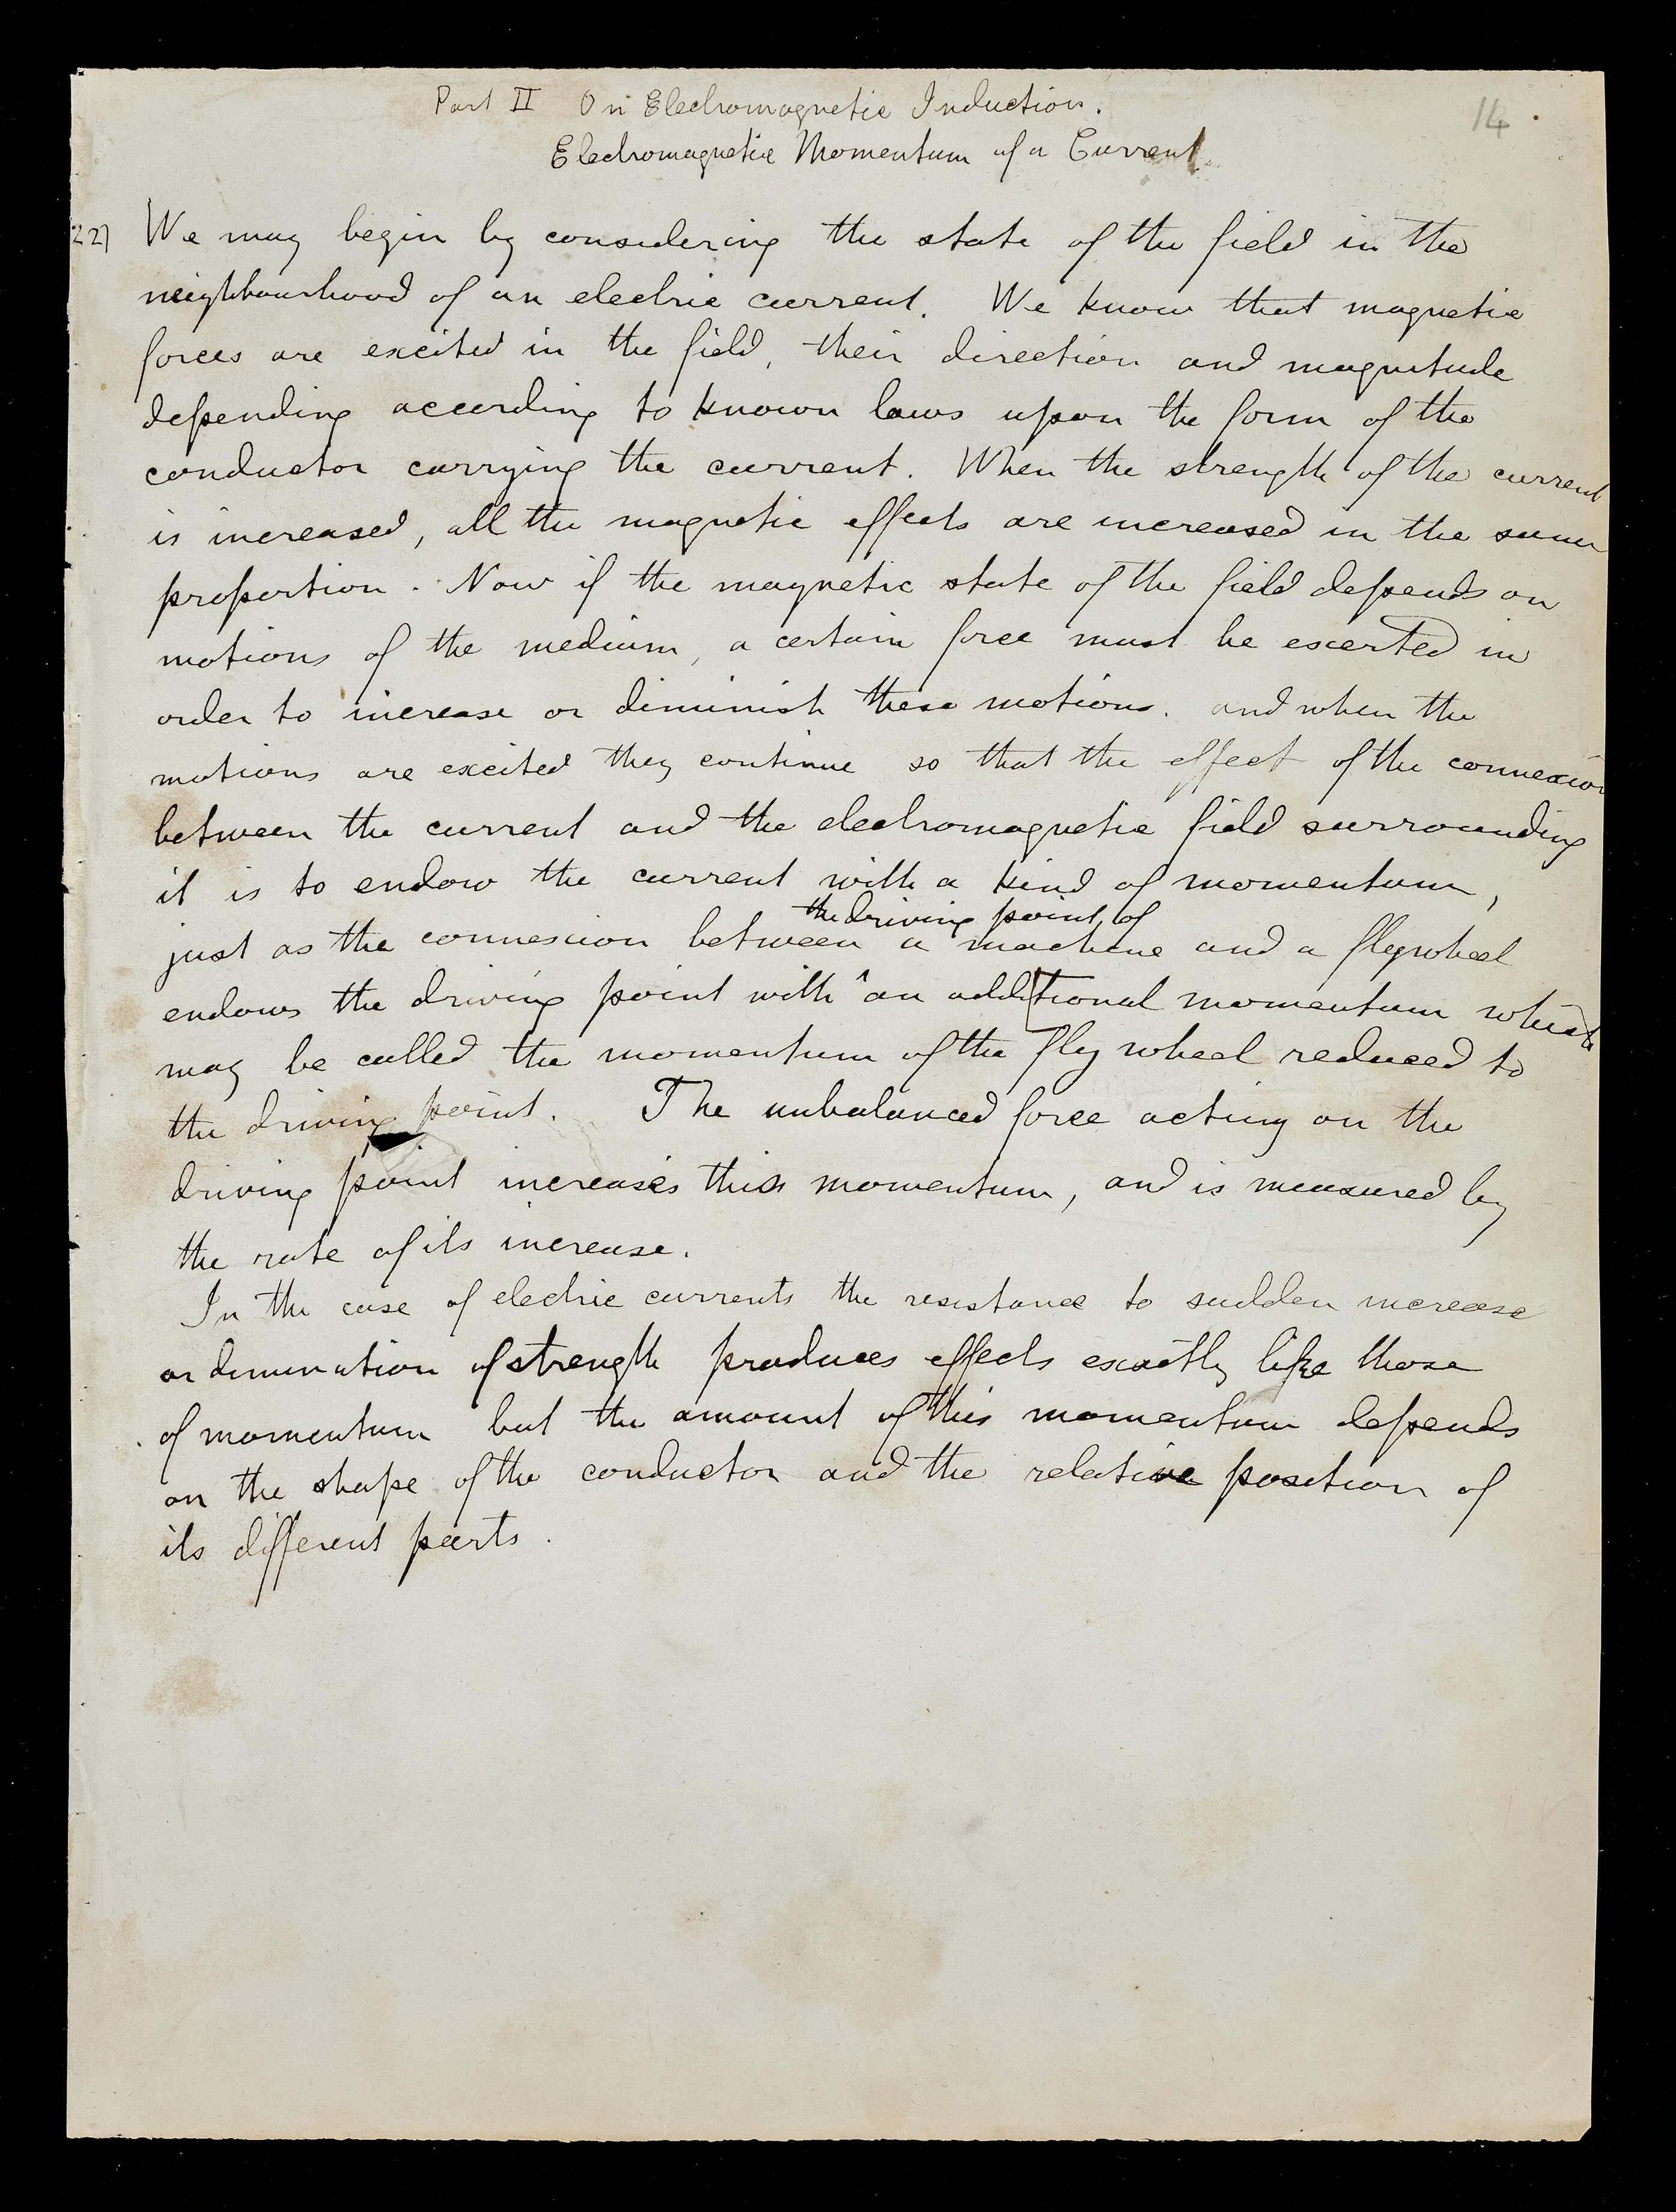 Part II On Electromagnetic Induction.
14
Electromagnetic Momentum of a Current.
22) We may begin by considering the state of the field in the
neighbourhood of an electric current. We know that magnetic
forces are excited in the field, their direction and magnitude
depending according to known laws upon the form of the
conductor carrying the current. When the strength of the current
is increased, all the magnetic effects are increased in the same
proportion. Now if the magnetic state of the field depends on
motions of the medium, a certain force must be exerted in
order to increase or diminish these motions. and when the
motions are excited they continue so that the effect of the connexion
between the current and the electromagnetic field surrounding
it is to endow the current with a kind of momentum,
the driving point of
just as the connexion between a machine and a flywheel
endows the driving point with an additional momentum which
may be called the momentum of the fly wheel reduced to
the driving point. The unbalanced force acting on the
driving point increases this momentum, and is measured by
the rate of its increase.
In the case of electric currents the resistance to sudden increase
or diminution of strength produces effects exactly like those
of momentum but the amount of this momentum depends
on the shape of the conductor and the relative position of
its different parts.